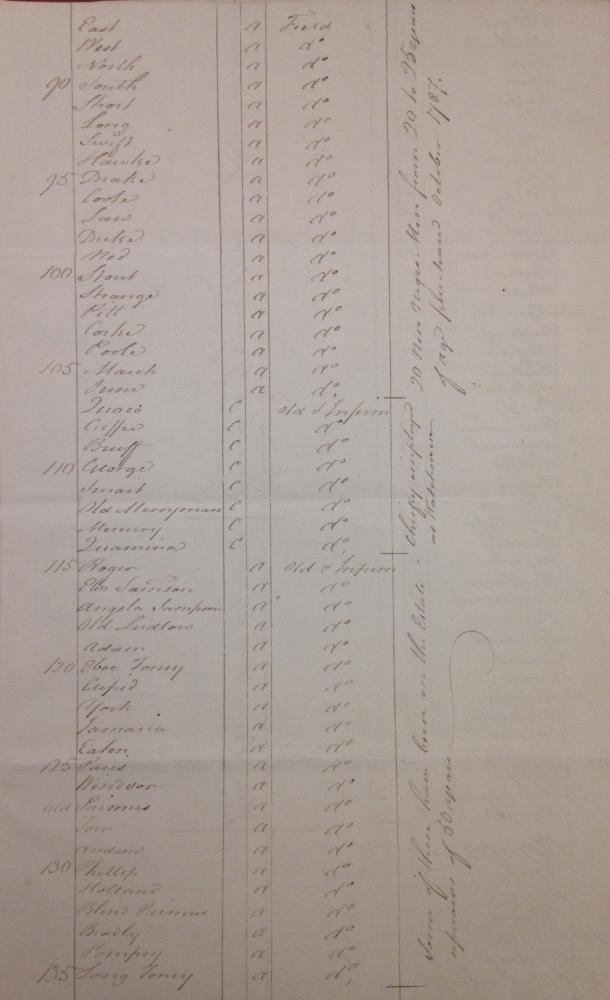 East a Field
West a do
North a do
90 South a do
Short a do
Long a do
Swift a do
Hawke a do
95 Drake a do
Coote a do
Law a do
Duke a do
Ned a do
100 Stout a do
Strange a do
Pitt a do
Corke a do
Poole a do
105 March a do
June a do
Quaco C Old & Infirm
Cuffee C do
Bruff C do
110 George C do
Smart C do
Old Merryman C do
Mercury C do
Quamina C do
115 Roger a Old & Infirm
Ebo Samson a do
Angola Sampson a do
Old Ludlow a do
Adam a do
120 Eboe Toney a do
Cupid a do
York a do
Jamaica a do
Eaton a do
125 Paris a do
Windsor a do
Old Primus a do
Tom a do
Andrew a do
130 Phillip a do
Holland a do
Blind Primus a do
Bradly a do
Pompey a do
135 Long Toney a do
20 New Negro Men from 20 to 25 years
of age purchased October 1787.
Chiefly employed
as Watchmen
Some of these have been on the Estate
upwards of 50 years